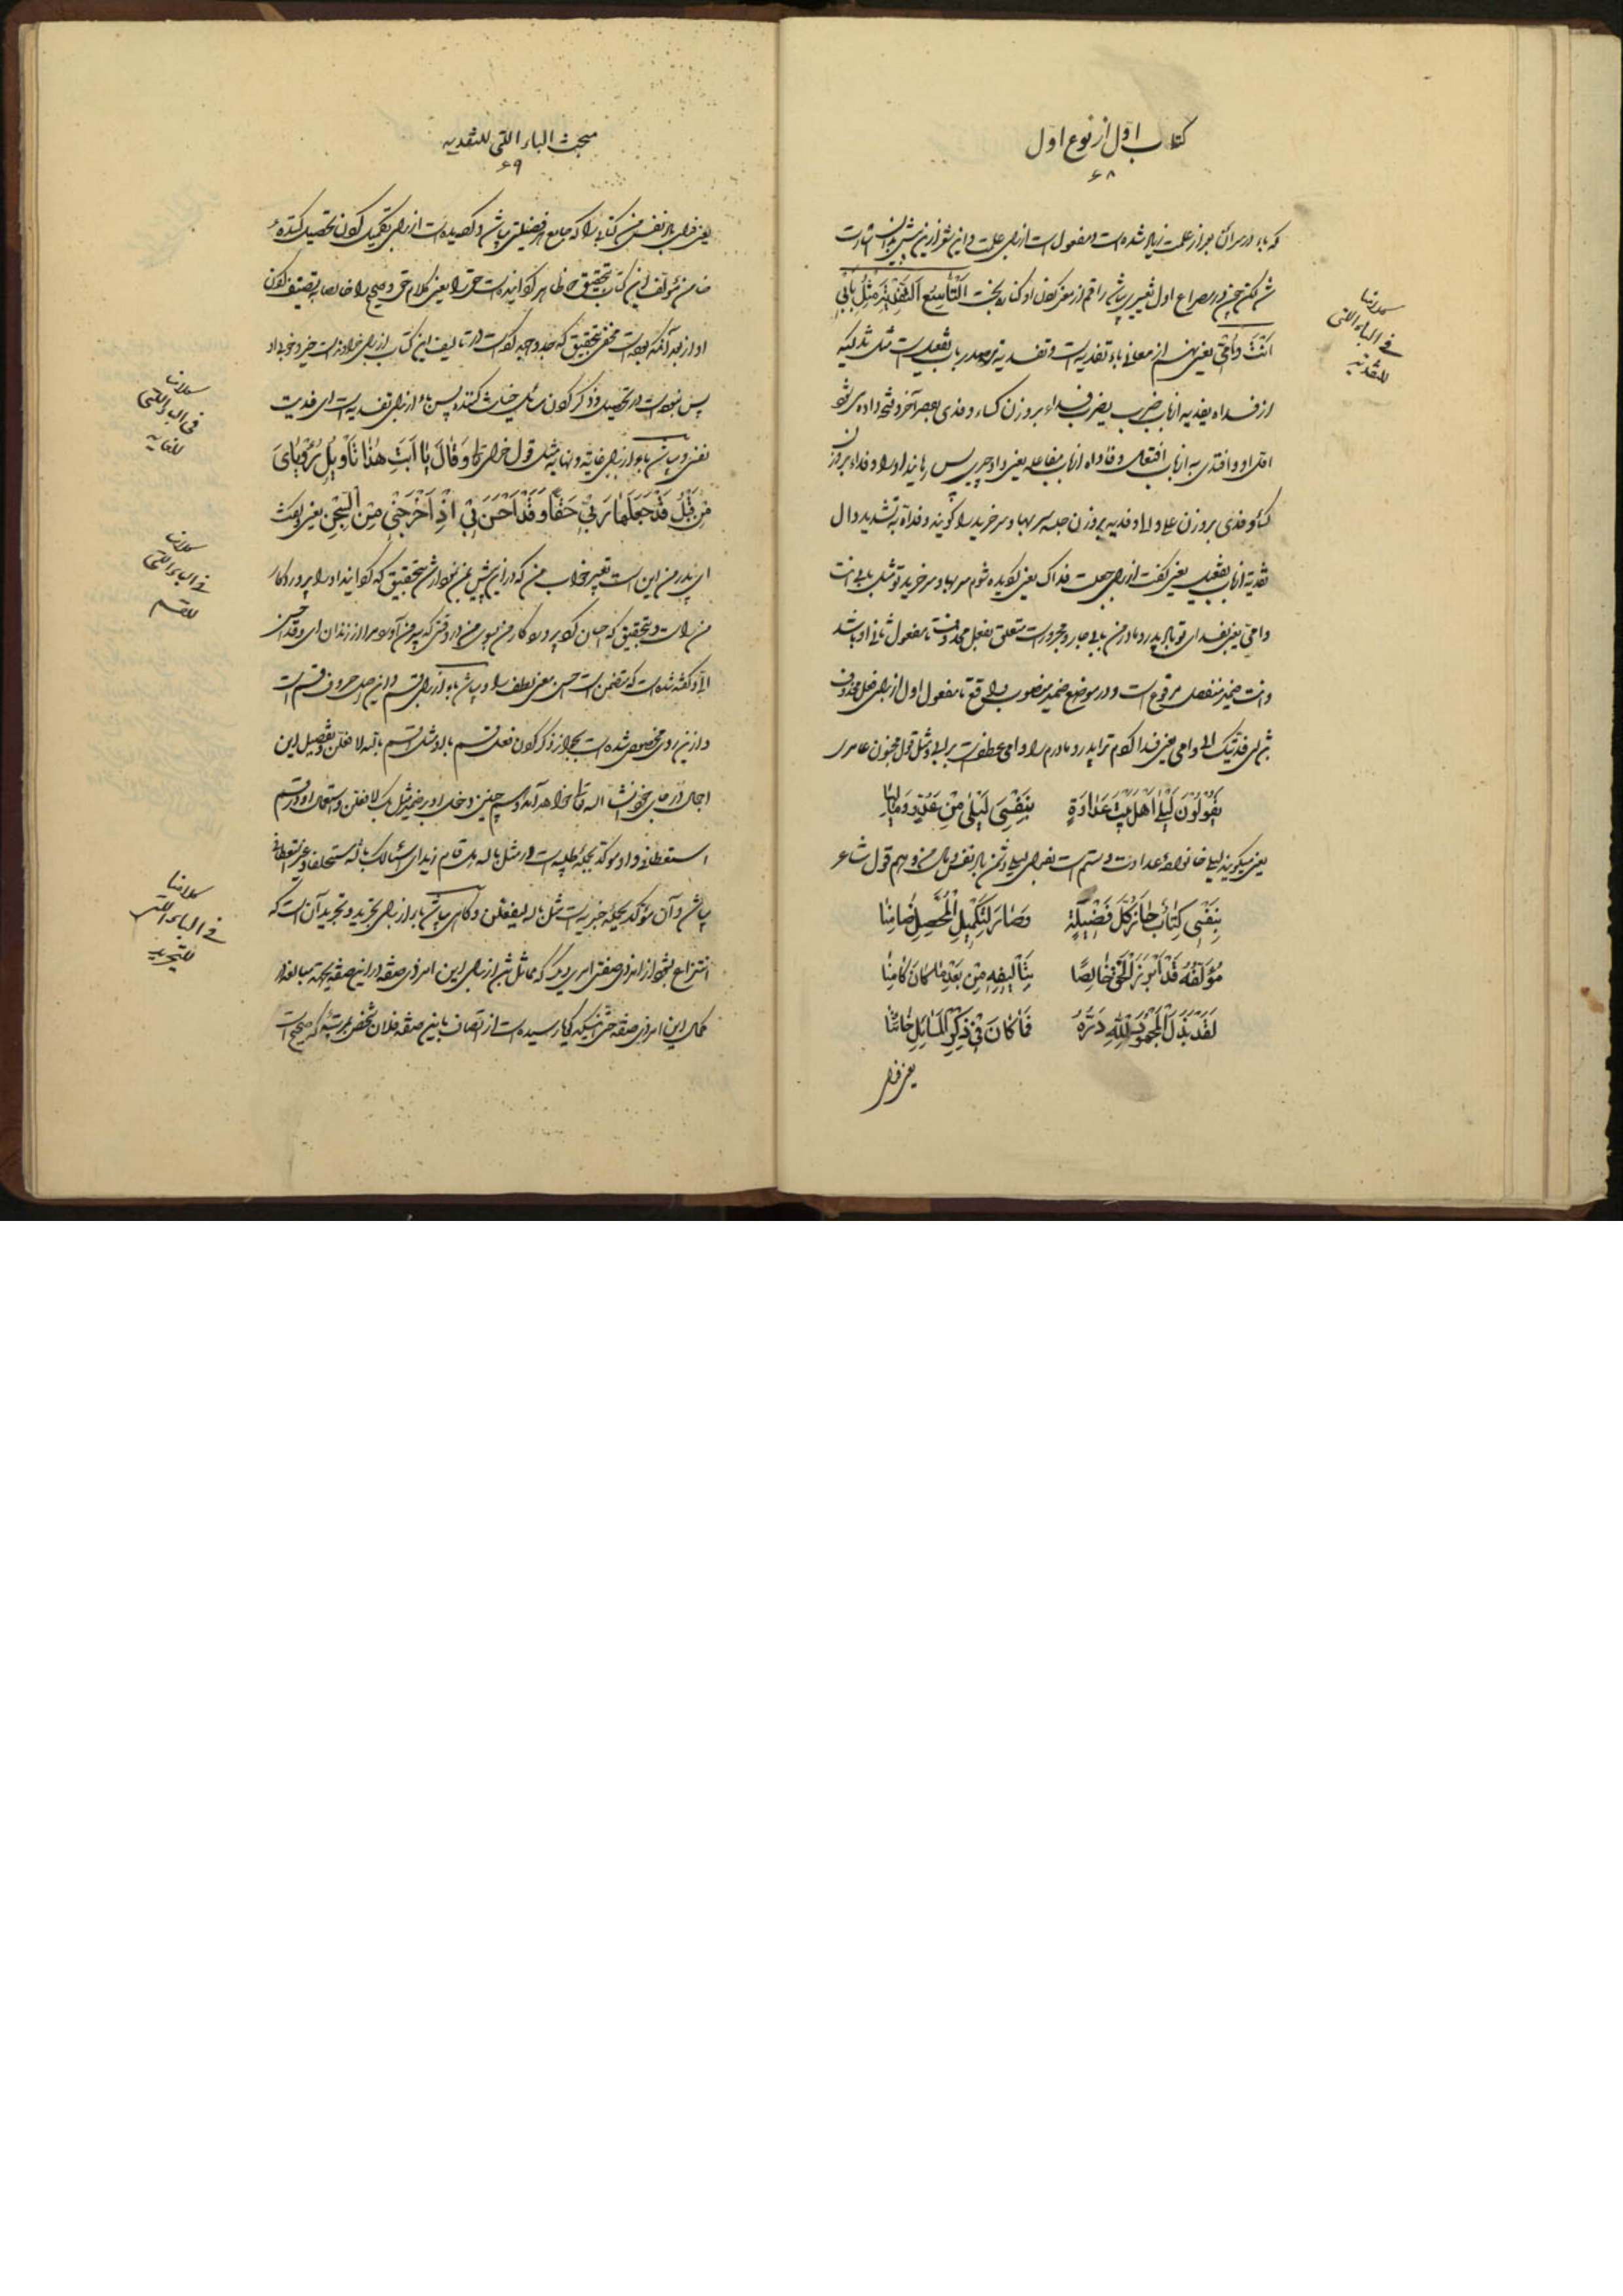 کتاب اول از نوع اول
۶۸
که باء در سر آن بعد از علمت زیاد شده است و مفعول است از برای علمت و این شعر ازین پیش
در مصراع اول تغییری از معنی اَلتّاسِعُ اَلتَّفْدِیَةُ مِثْلُ بِاَبی
اَنْتَ وَاُمّی یعنی نهم از معانی باء تفدیه است و تفدیه مصدر باب تفعیل است مثل
از فداه یفدیه از باب ضرب یضرب فداء بر وزن کساء و فدی بقصر آخر
و افتدی به از باب افتعال و فاداه از باب مفاعله یعنی داد چیزی پس رهانید او را و فداء بر وزن
کساء و فدی بر وزن علی و الی و فدیه بر وزن جلسه سر بها و سر خرید را گویند و فداه به تشدید دال
تفدیة از باب تفعیل یعنی گفت از برای جعلت فداک یعنی گردیده شوم سر بها و سر خرید تو مثل بابی انت
و امی یعنی بفدای تو باد پدر و مادر من بابی جار و مجرور است متعلق بفعل محذوف تا مفعول ثانی او باشد
و انت ضمیر منفصل مرفوع است و در موضع ضمیر منصوب واقع تا مفعول اول از برای فعل محذوف
ای فدّیتک ابی و امی یعنی فدا کردم ترا پدر و مادرم را و امی عطفست بر ابی و مثل قول مجنون عامری
یَقُولُونَ لَیْلی اَهْلُ بَیْتِ عَداوَةٍ بِنَفْسِی لَیْلی مِنْ عَدُوٍّ وَمالِیا
یعنی میگویند لیلی خانواده عداوت و ستم است بفدای لیلی دشمن باد نفس و مال من و هم قول شاعر
بِنَفْسی کِتابٌ حازَ کُلَّ فَضیلَةٍ وَصارَ لِتَکْمیلِ الْمُحَصِّلِ ضامِنا
مُؤَلِّفُهُ قَدْ اَبْرَزَ الْحَقَّ خالِصًا بِتَألیفِهِ مِنْ بَعْدِ ما کانَ کامِنا
لَقَدْ بَذَلَ الْمَجْهُودَ لِلّهِ دَرُّهُ فَما کانَ فی ذِکْرِ الْمَسائِلِ خائِنا
یعنی فدای
کلامنا
فی الباء التی
للتفدیه
مبحث الباء التی للتفدیه
۶۹
یعنی فدای باد نفس من کتابی را که جامع هر فضیلتی باشد و گردیده است از برای تکمیل کردن تحصیل کننده
ضامن مؤلف این کتاب بتحقیق ظاهر گردانیده است حق را یعنی کلام حق و صحیح را خالصا بتصنیف کردن
او از بعد آنکه بوده است مخفی بتحقیق که جد و جهد کرده است در تالیف این کتاب از برای خداوند است خیر و خوبی او
پس نبوده است در تحصیل و ذکر کردن مسائل خیانت کننده پس باء از برای تفدیه است ای فدیت
نفسی و میباشد باء از برای غایة و نهایه مثل قول خدای تعالی وَقالَ یا اَبَتِ هذا تَأْویلُ رُؤْیایَ
مِنْ قَبْلُ قَدْ جَعَلَها رَبّی حَقًّا وَقَدْ اَحْسَنَ بی اِذْ اَخْرَجَنی مِنَ السِّجْنِ یعنی و گفت
ای پدر من این است تعبیر خواب من که در از این پیش بتحقیق که گردانید او را پروردگار
من راست و بتحقیق که احسان کرد پروردگار من بسوی من در وقتی که بیرون آورد مرا از زندان ای و قد احسن
الیّ و گفته شده است که متضمن است احسن معنی لطف را و میباشد باء از برای قسم و این اصل حروف قسم است
و ازین روی مخصوص شده است بجواز ذکر کردن فعل قسم با او مثل اقسم بالله لافعلن و تفصیل این
اجمال در جای خود انشاء الله تعالی خواهد آمد و هم چنین دخول او بر ضمیر مثل بک لافعلن و استعمال او در قسم
استعطافی و او مؤکد بجمله طلبیه است مثل بالله هل قام زید ای اسئلک بالله مستحلفا و غیر استعطافی
باشد و آن مؤکد بجمله خبریه است مثل بالله لیفعلن و گاهی میباشد باء از برای تجرید و تجرید آن است که
انتزاع بشود از امر ذی صفتی امر دیگر که مماثل باشد از برای این امر ذی صفة در این صفة بجهة مبالغه در
کمال این امر ذی صفة حتی اینکه گویا رسیده است از اتصاف باین صفة فلان شخص بمرتبه که صحیح است
کلامنا
فی الباء التی
للغایه
کلامنا
فی الباء التی
للقسم
کلامنا
فی الباء التی
للتجرید